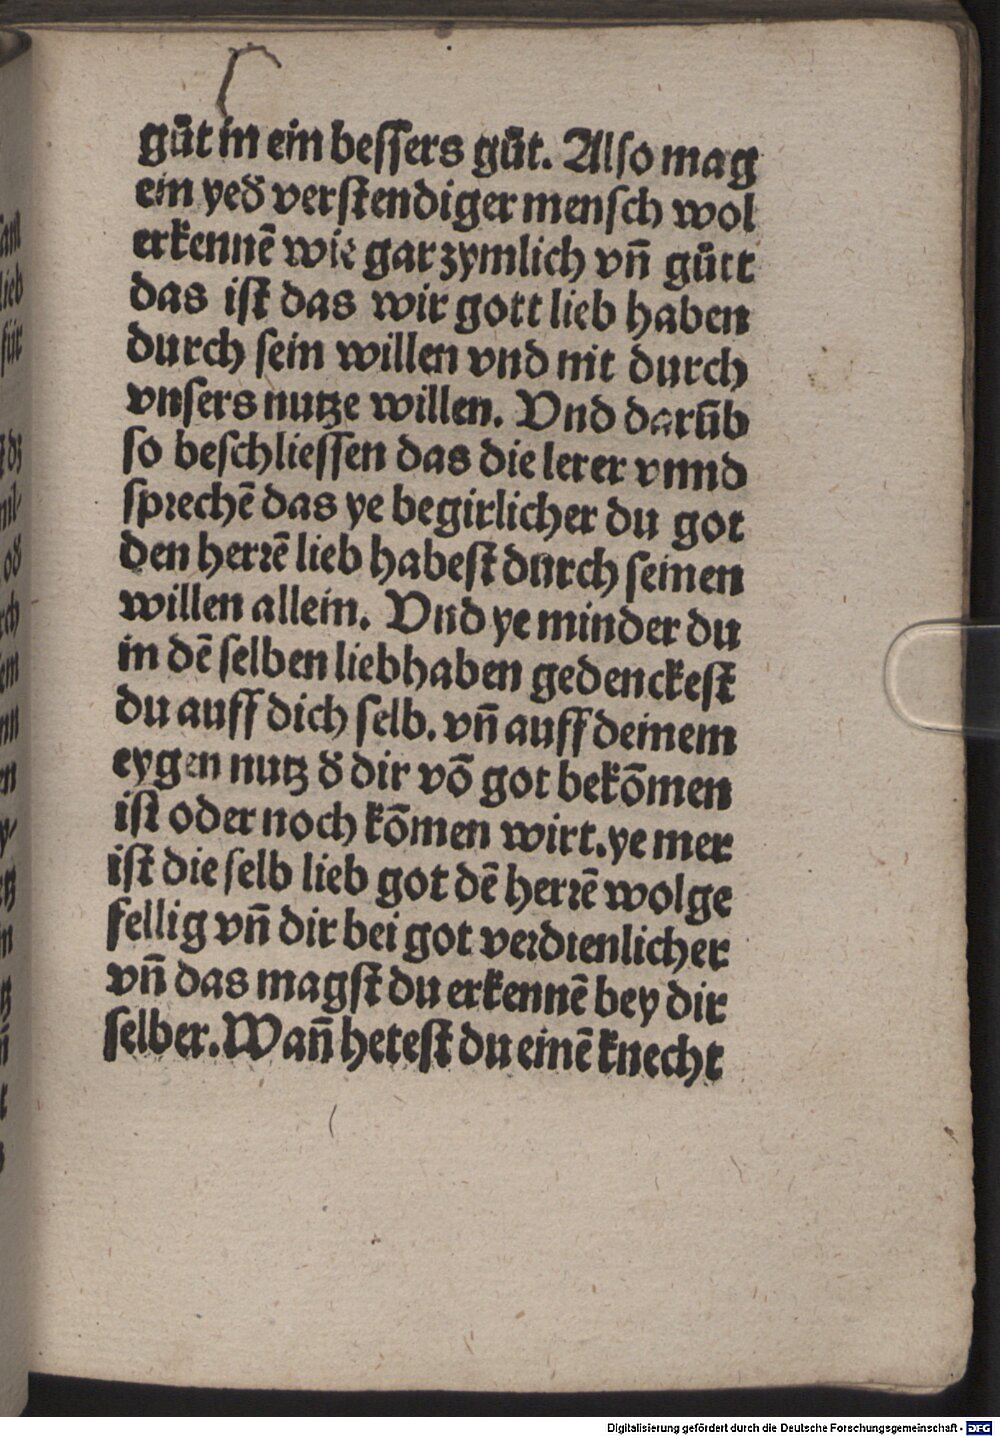 gůt in ein beſſers gůt. Alſo mag
ein yeđ verſtendiger menſch wol
erkennē wie gar zymlich vñ gůtt
das iſt das wir gott lieb haben
durch ſein willen vnd nit durch
vnſers nutze willen. Vnd darūb
ſo beſchlieſſen das die lerer vnnd
ſprechē das ye begirlicher du got
den herrē lieb habeſt durch ſeinen
willen allein. Vnd ye minder du
in dē ſelben liebhaben gedenckeſt
du auff dich ſelb. vñ auff deinem
eygen nutz đ dir vō got bekōmen
iſt oder noch kōmen wirt. ye mer
iſt die ſelb lieb got dē herrē wolge
fellig vñ dir bei got verdienlicher
vñ das magſt du erkennē bey dir
ſelber. Wañ heteſt du einē knecht
Digitalisierung gefördert durch die Deutsche Forschungsgemeinschaft - DFG